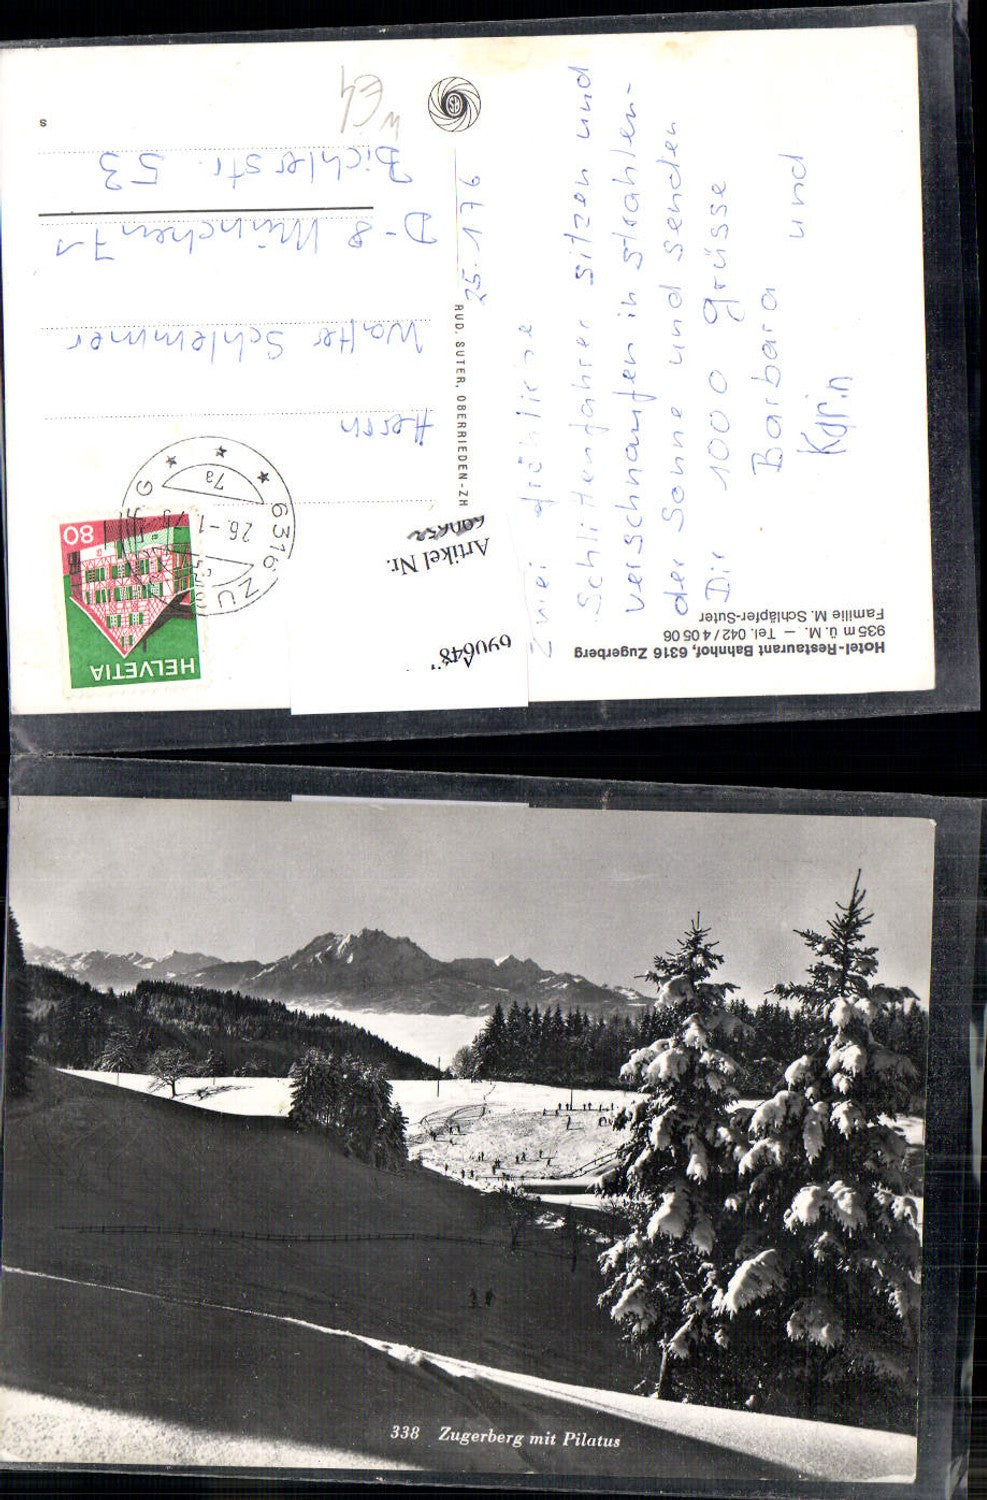 Hotel-Restaurant Bahnhof, 6316 Zugerberg
935 m ü. M. — Tel. 042 / 4 05 06
Familie M. Schläpfer-Suter
25. 1 76
Zwei fröhliche
Schlittenfahrer sitzen und
verschnaufen in strahlen-
der Sonne und senden
Dir 1000 Grüsse
Barbara und
Karin
RUD. SUTER, OBERRIEDEN-ZH
SB
HELVETIA
80
6316 ZUG
26.-1.76
7a
Herrn
Walter Schlemmer
D-8 München 71
Bichlerstr. 53
S
Artikel Nr.
690648
338 Zugerberg mit Pilatus